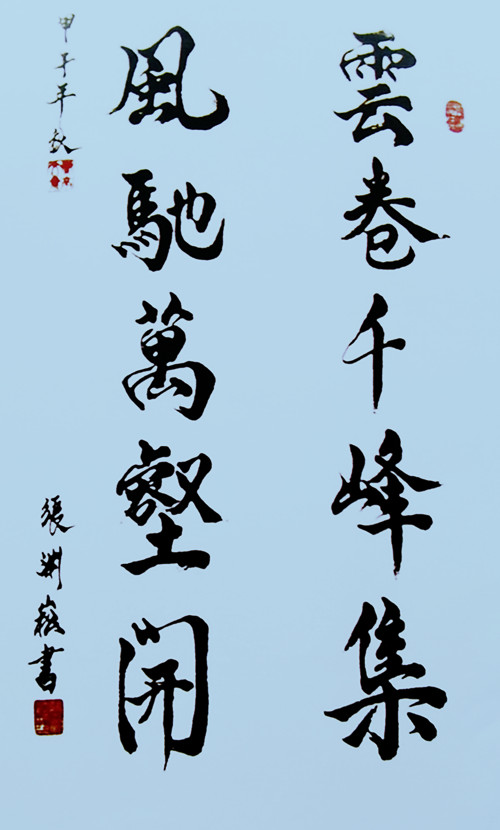 雲卷千峰集
風馳萬壑開
甲子年秋
張淵嶽書